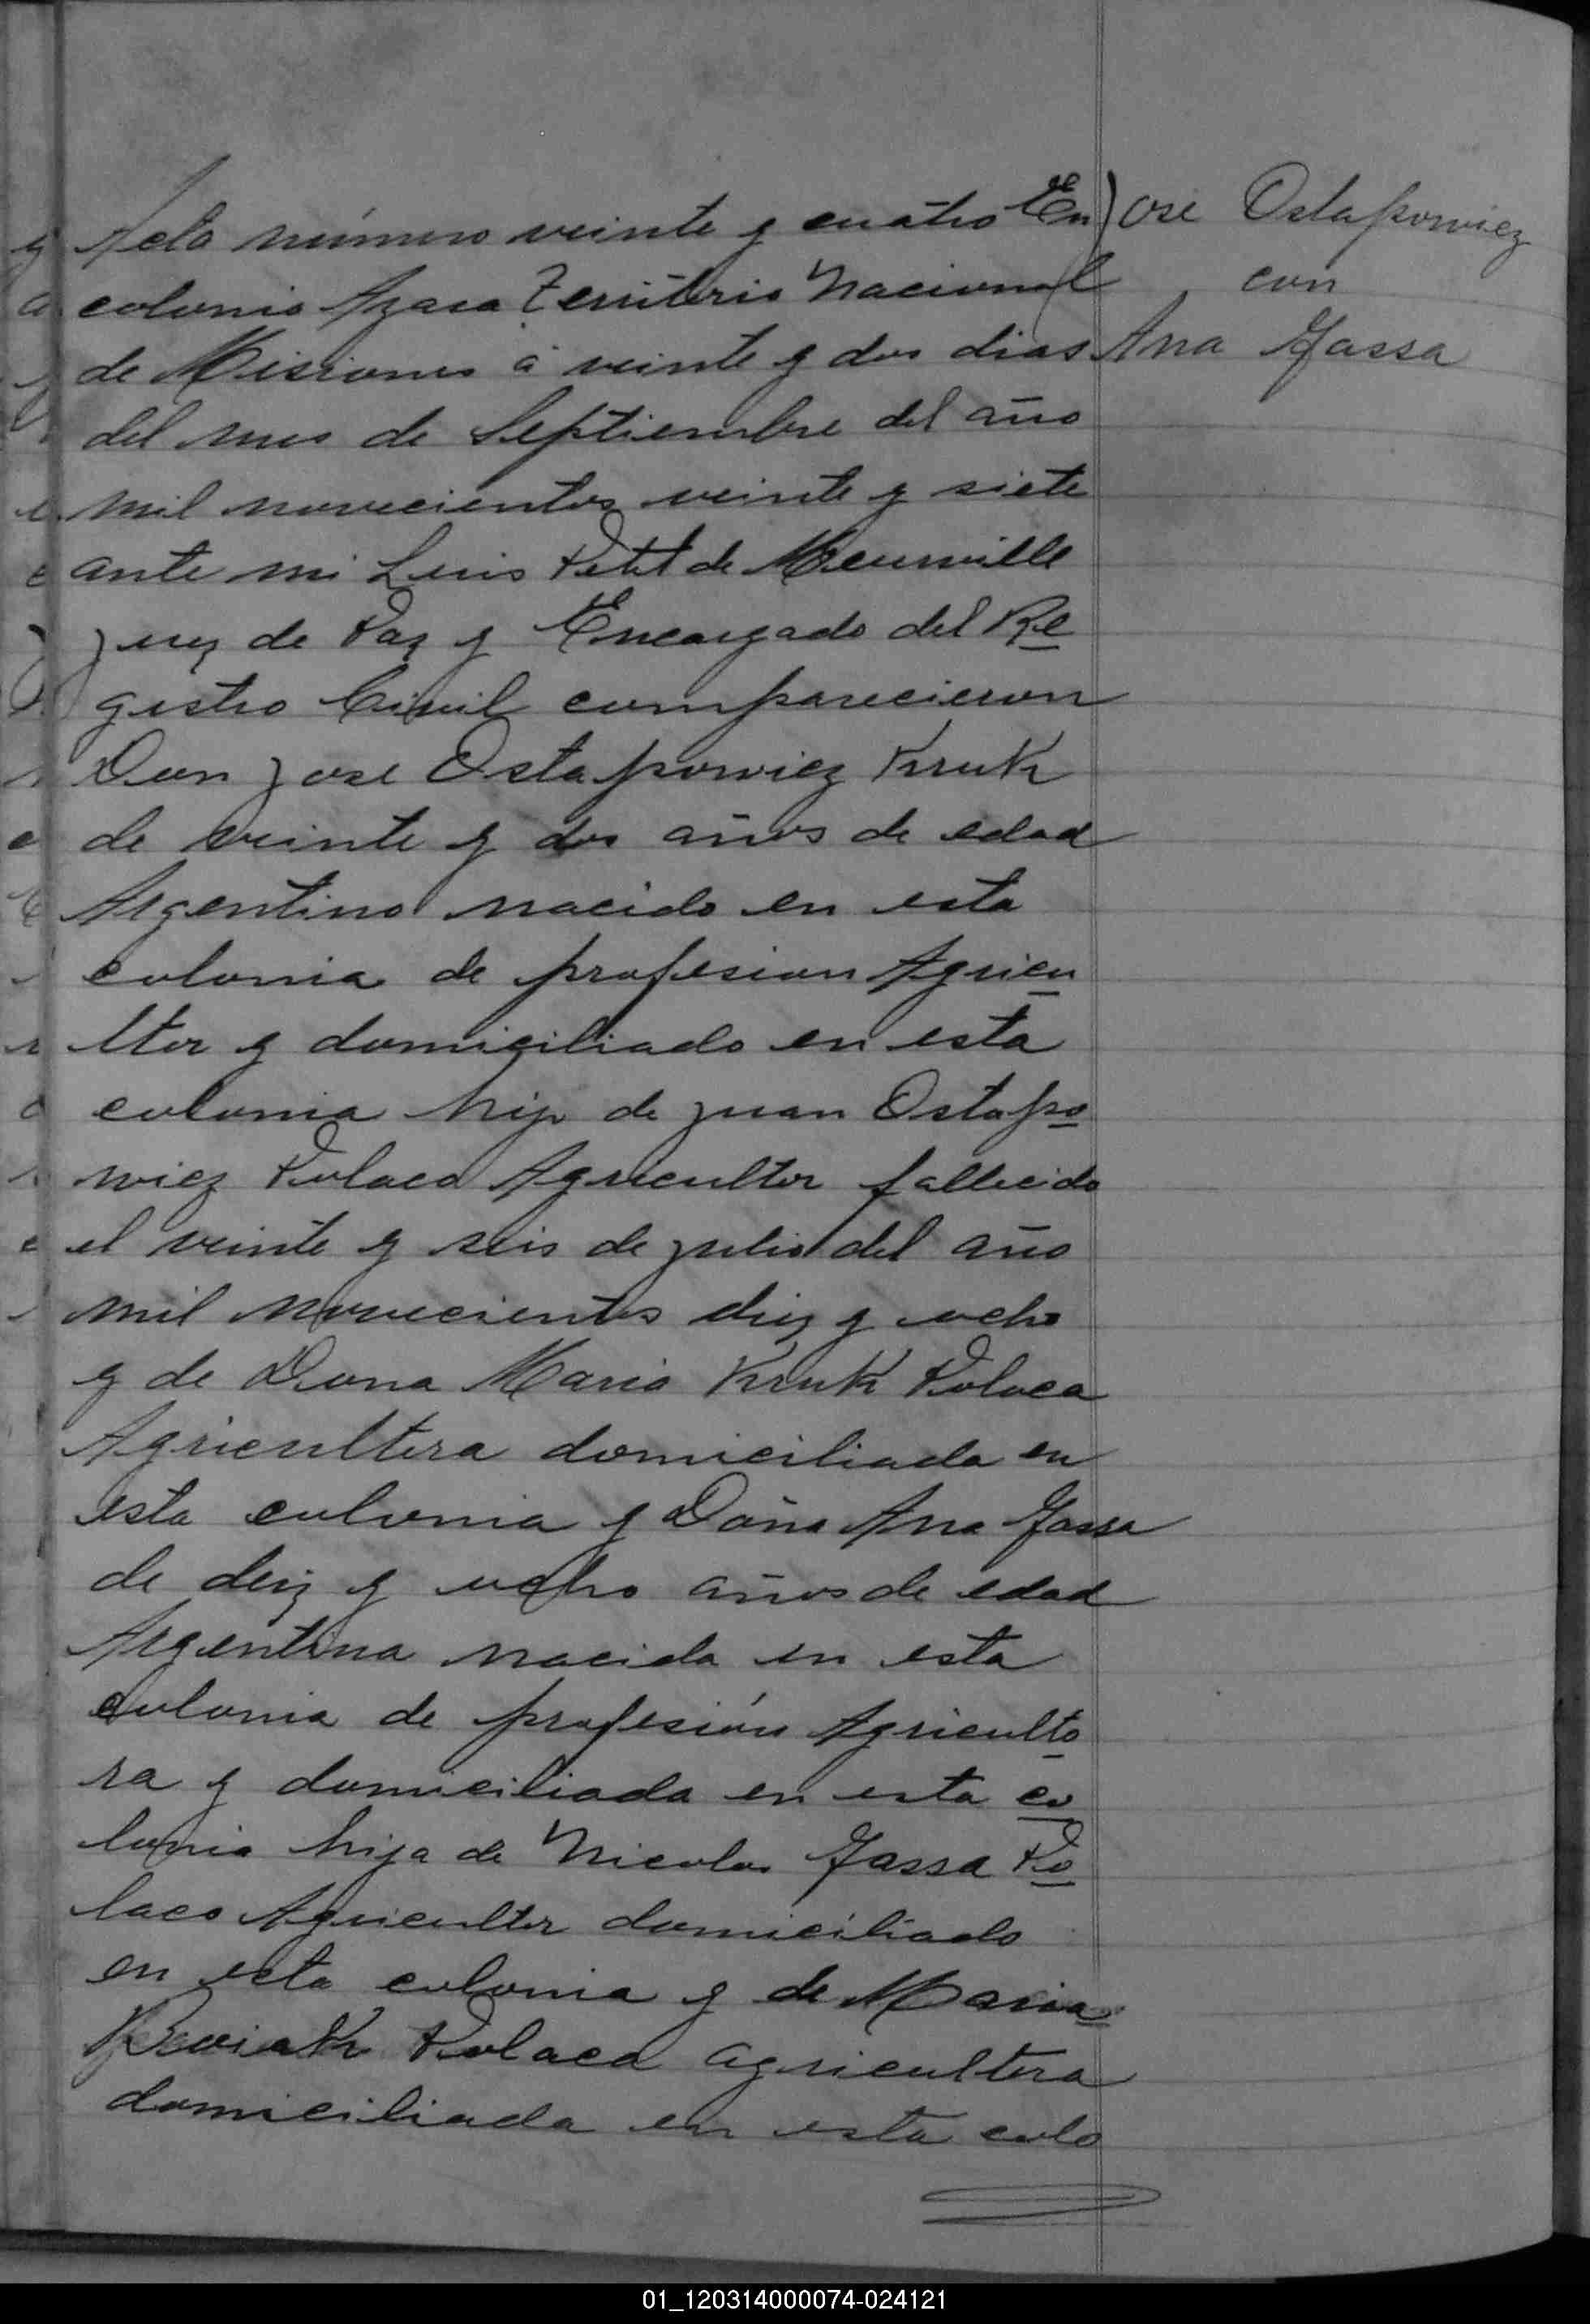 Acta número veinte y cuatro En
colonia Azara Territorio Nacional
de Misiones á veinte y dos dias
del mes de Septiembre del año
mil novecientos veinte y siete
ante mi Luis Petit de Meurville
Juez de Paz y Encargado del Re
gistro Civil comparecieron
Don Jose Ostapowiez Kruk
de veinte y dos años de edad
Argentino nacido en esta
colonia de profesion Agricu
ltor y domiciliado en esta
colonia hijo de Juan Ostapo
wiez Polaco Agricultor fallecido
el veinte y seis de Julio del año
mil novecientos diez y ocho
y de Dona Maria Kruk Polaca
Agricultora domiciliada en
esta colonia y Doña Ana Jassa
de deiz y ocho años de edad
Argentina nacida en esta
colonia de profesión Agriculto
ra y domiciliada en esta co
lonia hija de Nicolas Jassa Po
laco Agricultor domiciliado
en esta colonia y de Maria
Polaca agricultora
domiciliada en esta colo
Jose Ostapowiez
con
Ana Jassa
01_120314000074-024121